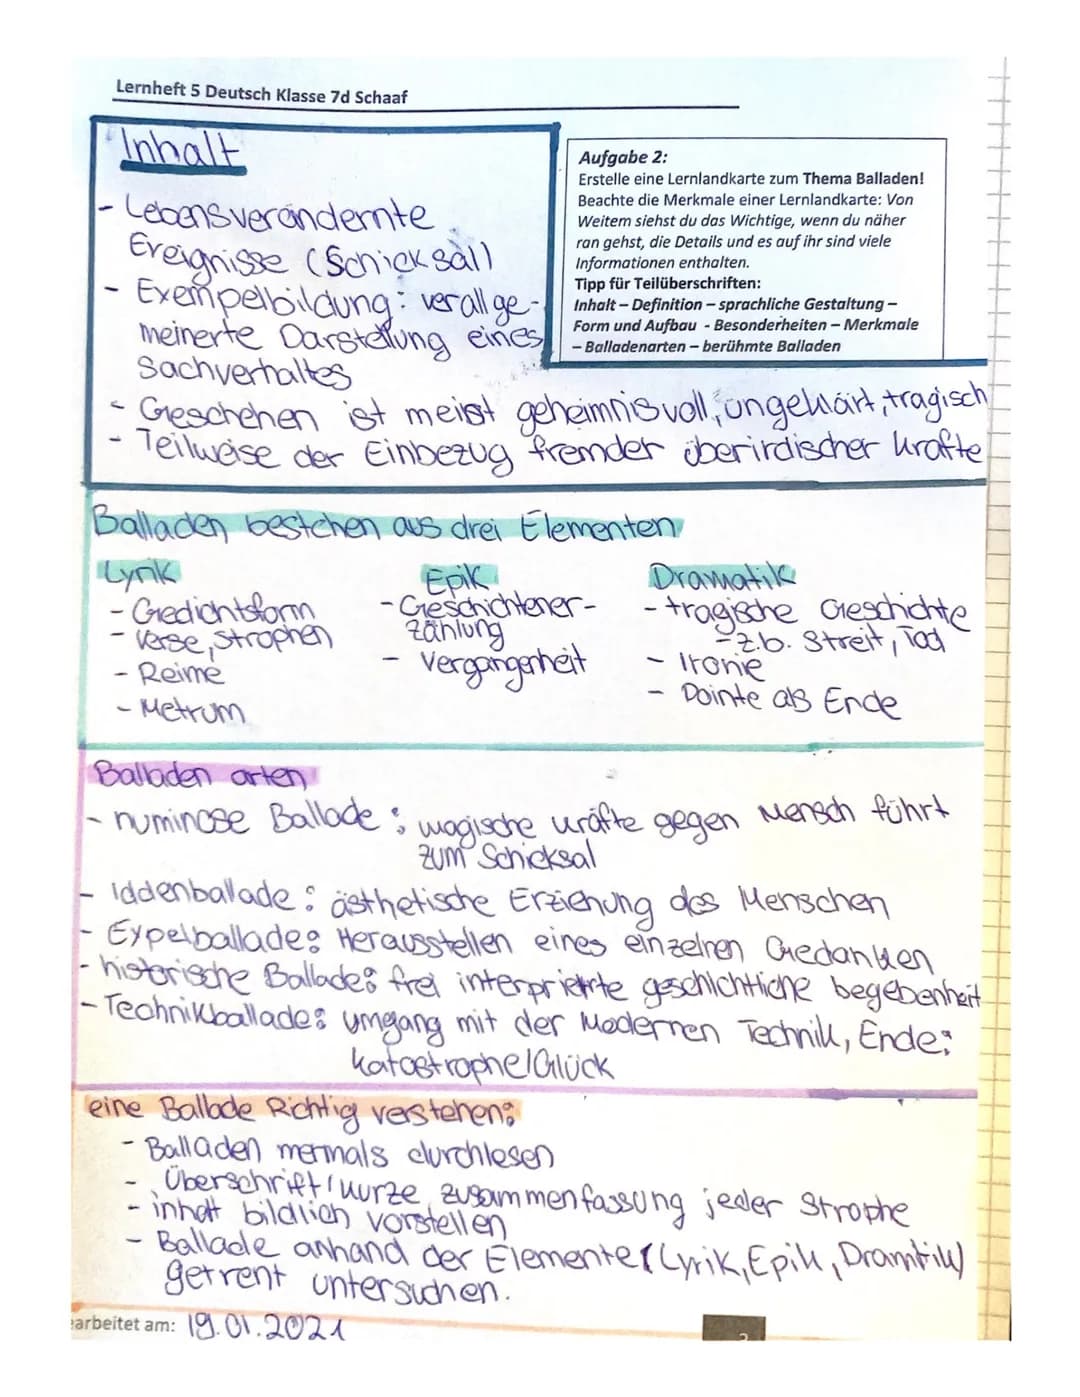 Lernheft 5 Deutsch Klasse 7d Schaaf
Inhalt
- Lebensverändernte
Ereignisse (Schicksal)
- Exempelbildung: verallge-
meinerte Darstellung eines
Sachverhaltes
- Geschehen ist meist geheimnisvoll, ungeklärt, tragisch
- Teilweise der Einbezug fremder überirdischer kräfte
Aufgabe 2:
Erstelle eine Lernlandkarte zum Thema Balladen!
Beachte die Merkmale einer Lernlandkarte: Von
Weitem siehst du das Wichtige, wenn du näher
ran gehst, die Details und es auf ihr sind viele
Informationen enthalten.
Tipp für Teilüberschriften:
Inhalt – Definition – sprachliche Gestaltung –
Form und Aufbau - Besonderheiten – Merkmale
– Balladenarten – berühmte Balladen
Balladen bestehen aus drei Elementen
Lyrik
- Gedichtsform
- Verse, Strophen
- Reime
- Metrum
Epik
- Geschichtener-
zählung
- Vergangenheit
Dramatik
- tragische Geschichte
- z.b. Streit, Tod
- Ironie
- Pointe als Ende
Balladen arten
- numinose Ballade: magische kräfte gegen Mensch führt
zum Schicksal
- Iddenballade: ästhetische Erziehung des Menschen
- Expelballade: Herausstellen eines einzelnen Gedanken
- historische Ballade: frei interpriertte geschichtliche begebenheit
- Technikballade: umgang mit der Modernen Technik, Ende:
katastrophe/Glück
eine Ballade Richtig verstehen:
- Balladen mermals durchlesen
- Überschrift/kurze zusammenfassung jeder Strophe
- inhalt bildlich vorstellen
- Ballade anhand der Elemente (Lyrik, Epik, Dramtik)
getrent untersuchen.
earbeitet am: 19.01.2021